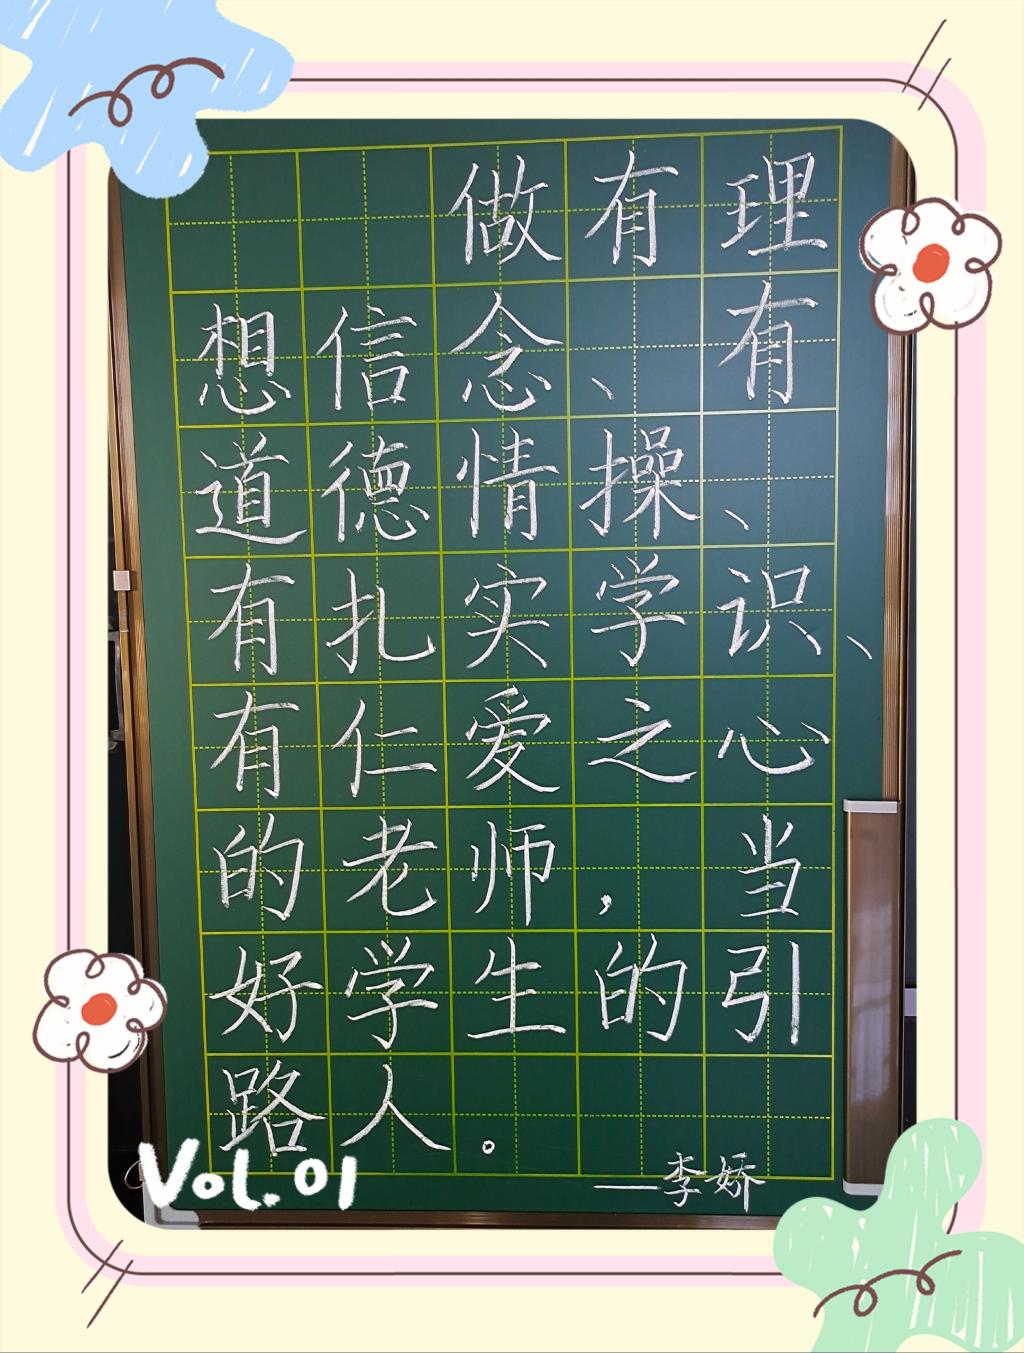 做有理
想信念、有
道德情操、
有扎实学识、
有仁爱之心
的老师，当
好学生的引
路人。
——李娇
Vol.01